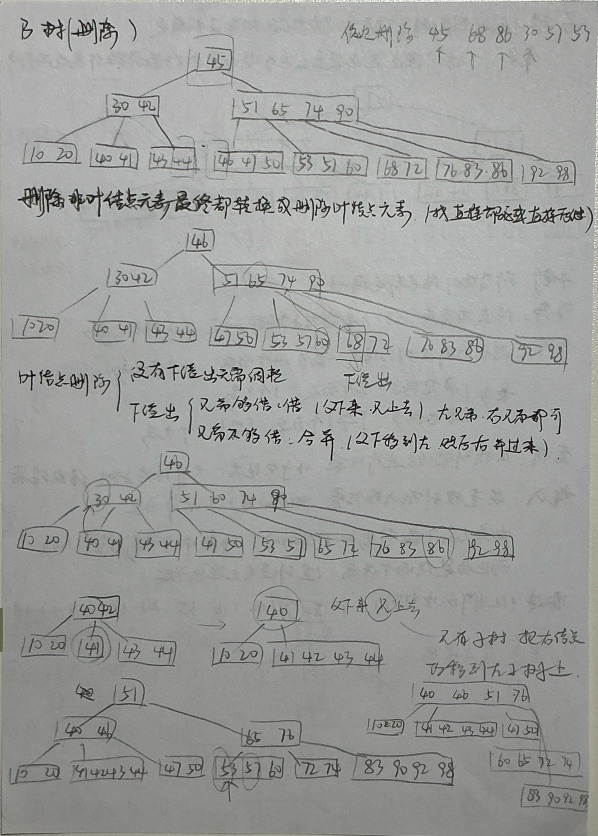 B树(删除)
依次删除 45 68 86 30 57 53
45
30 42 51 65 74 90
10 20 40 41 43 44 46 47 50 53 57 60 68 72 76 83 86 92 98
删除非叶结点元素最终都转换成删除叶结点元素 (找直接前驱或直接后继)
46
30 42 51 65 74 90
10 20 40 41 43 44 47 50 53 57 60 68 72 76 83 86 92 98
下溢出
叶结点删除
没有下溢出无需调整
下溢出
兄弟够借:借 (父下来,兄上去) 左兄弟、右兄弟都可
兄弟不够借:合并 (父下移到左,然后右并过来)
46
30 42 51 60 74 90
10 20 40 41 43 44 47 50 53 57 65 72 76 83 86 92 98
40 42 → 40 父下来 兄上去
10 20 41 43 44 10 20 41 42 43 44
只有子树 把右结点
功移到左子树上
51
40 46 65 76
10 20 41 42 43 44 47 50 53 57 60 72 74 83 90 92 98
40 46 51 76
10 20 41 42 43 44 47 50
60 65 72 74
83 90 92 98